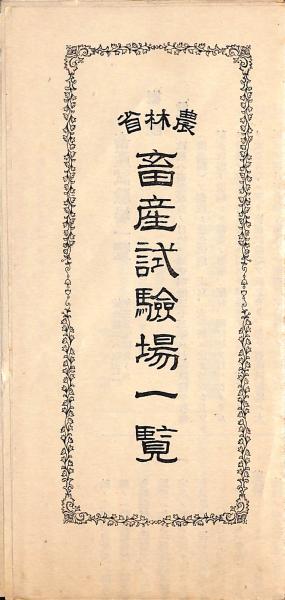 農林省
畜産試驗場一覧